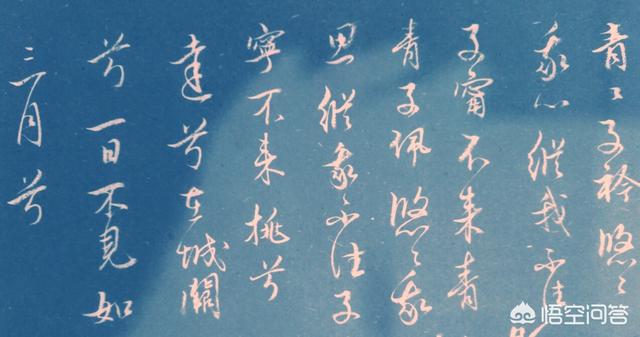 青々子衿悠々
我心縱我不往
子甯不来青
青子佩悠々我
思縱我不往子
寧不来挑兮
達兮在城闕
兮一日不見如
三月兮
悟空问答